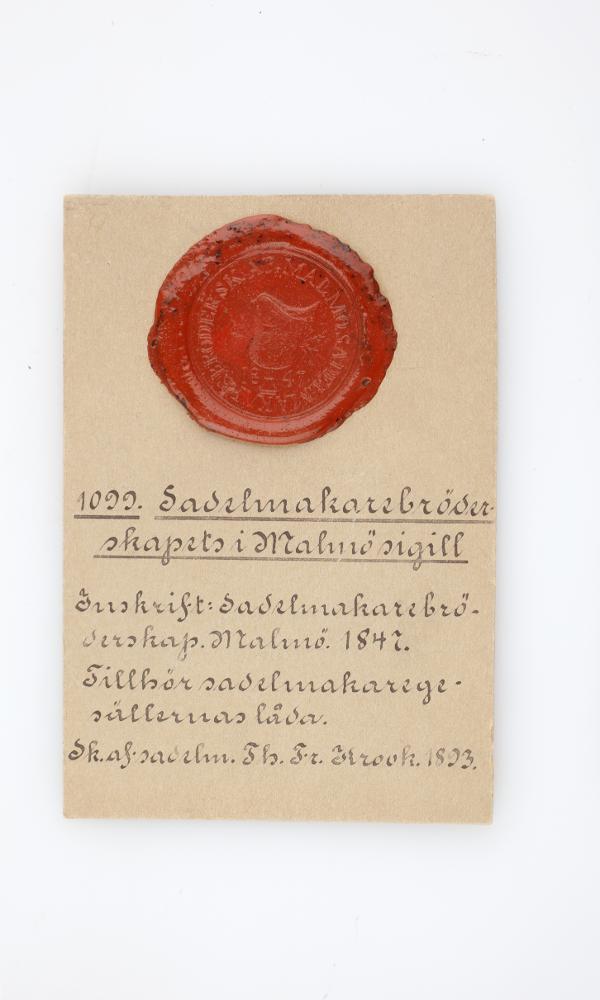 MALMÖ SADELMAKAREBRÖDERSKAP
1847
1099. Sadelmakarebröder-
skapets i Malmö sigill
Inskrift: Sadelmakarebrö-
derskap. Malmö. 1847.
Tillhör sadelmakarege-
sällernas låda.
Sk. af sadelm. Th. Fr. Krook. 1893.